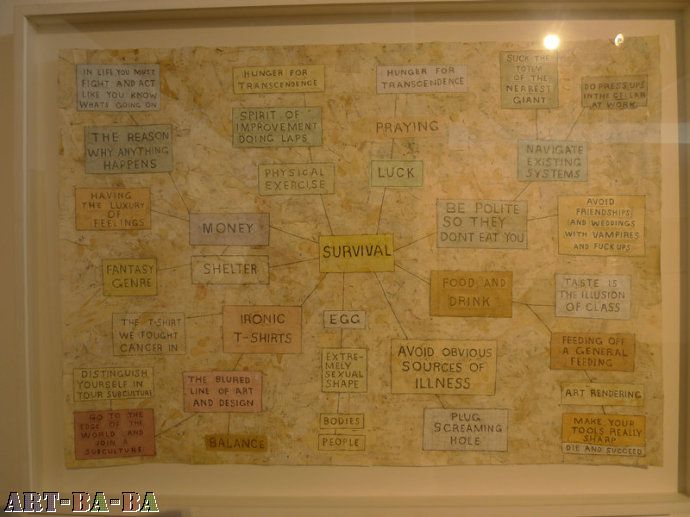 IN LIFE YOU MUST
FIGHT AND ACT
LIKE YOU KNOW
WHATS GOING ON
HUNGER FOR
TRANSCENDENCE
HUNGER FOR
TRANSCENDENCE
SUCK THE
TOTEM
OF THE
NERBEST
GIANT
DO PRESS UPS
IN THE CELLAR
AT WORK
THE REASON
WHY ANYTHING
HAPPENS
SPIRIT OF
IMPROVEMENT
DOING LAPS
PRAYING
NAVIGATE
EXISTING
SYSTEMS
PHYSICAL
EXERCISE
LUCK
HAVING
THE LUXURY
OF
FEELINGS
MONEY
BE POLITE
SO THEY
DONT EAT YOU
AVOID
FRIENDSHIPS
(AND WEDDINGS
WITH VAMPIRES
AND FUCK UPS
SURVIVAL
FANTASY
GENRE
SHELTER
FOOD AND
DRINK
TASTE IS
THE ILLUSION
OF CLASS
THE T-SHIRT
WE FOUGHT
CANCER IN
IRONIC
T-SHIRTS
EGG
AVOID OBVIOUS
SOURCES OF
ILLNESS
FEEDING OFF
A GENERAL
FEEDING
EXTRE-
MELY
SEXUAL
SHAPE
DISTINGUISH
YOURSELF IN
YOUR SUBCULTURE
THE BLURED
LINE OF ART
AND DESIGN
ART RENDERING
GO TO THE
EDGE OF THE
WORLD AND
JOIN A
SUBCULTURE
BALANCE
BODIES
PEOPLE
PLUG
SCREAMING
HOLE
MAKE YOUR
TOOLS REALLY
SHARP
DIE AND SUCCEED
ART-BA-BA